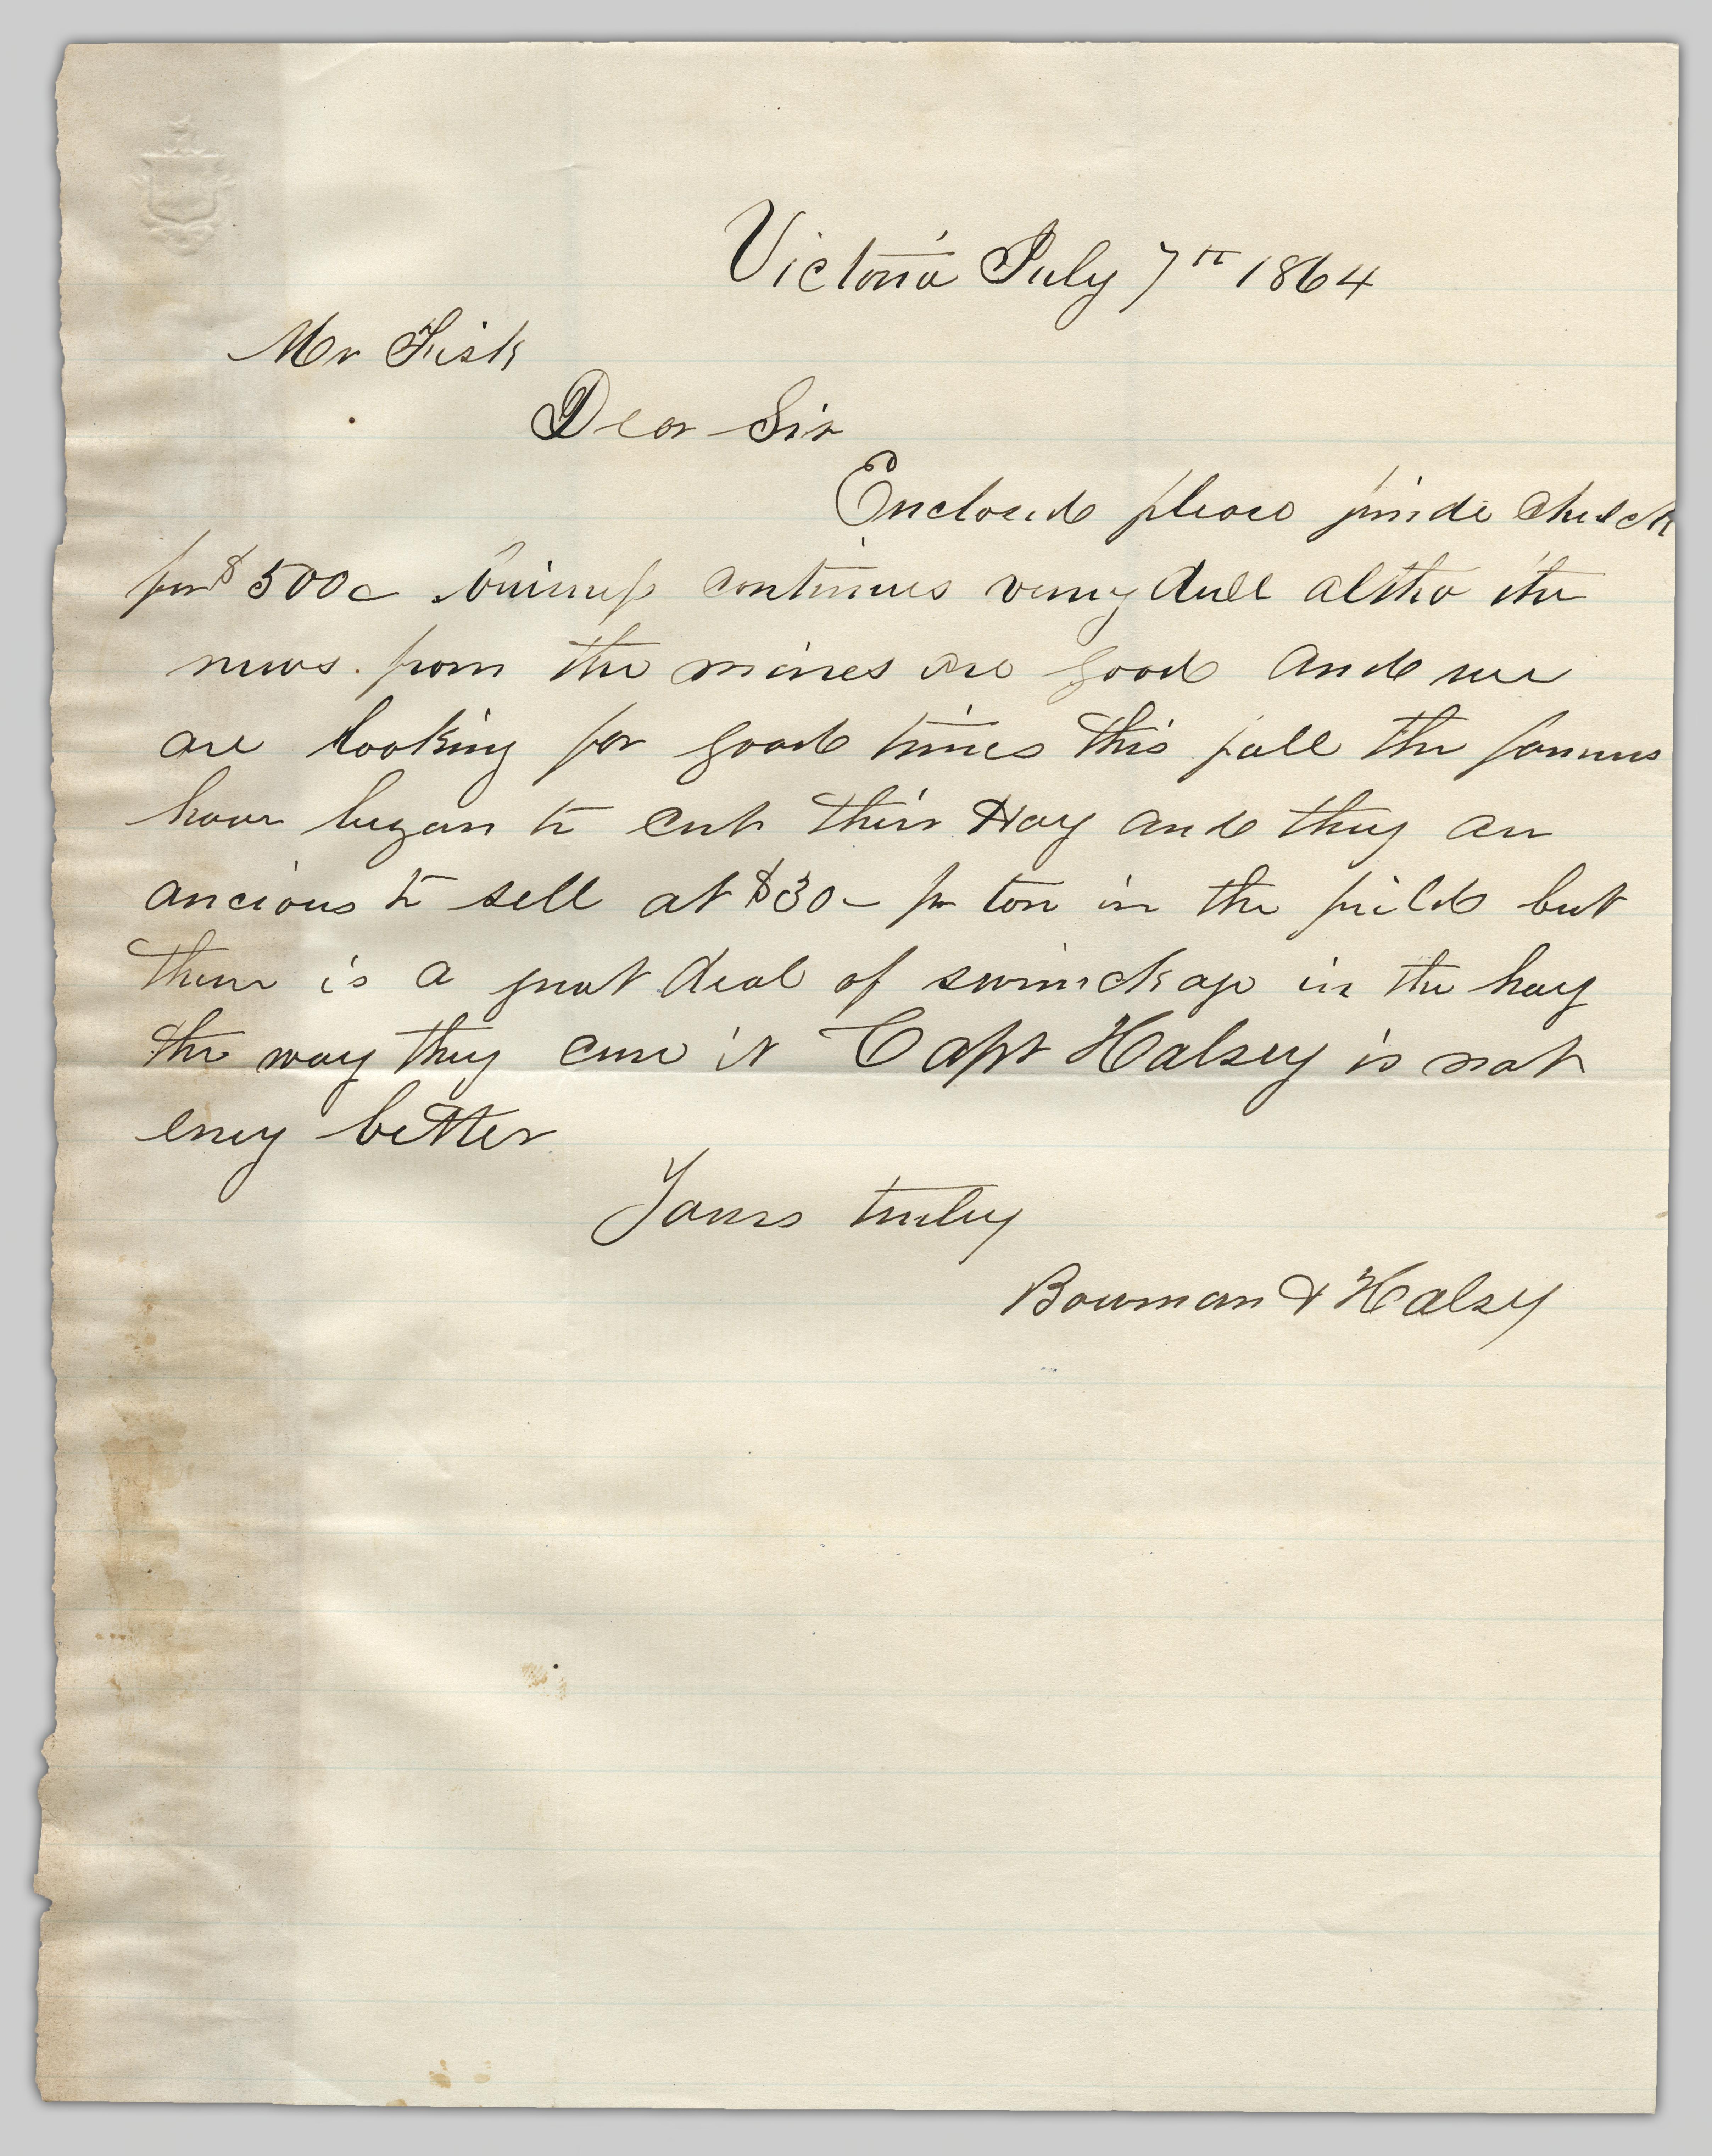 Victoria July 7th 1864
Mr Fisk
Dear Sir
Enclosed please finde check
for $500c buisness continues verry dull altho the
news from the mines are good and we
are looking for good times this fall the farmers
have began to cut their Hay and they are
ancious to sell at $30- pr ton in the field but
there is a great deal of swrinckage in the hay
the way they cure it Capt Halsey is not
eney better
Yours truley
Bowman & Halsey